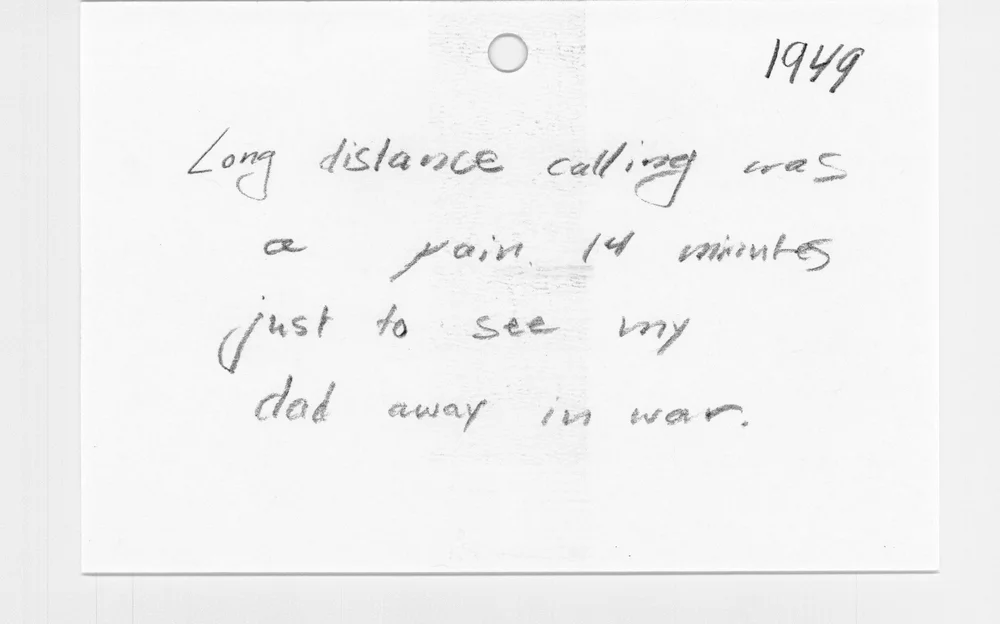 1949
Long distance calling was
a pain. 14 minutes
just to see my
dad away in war.